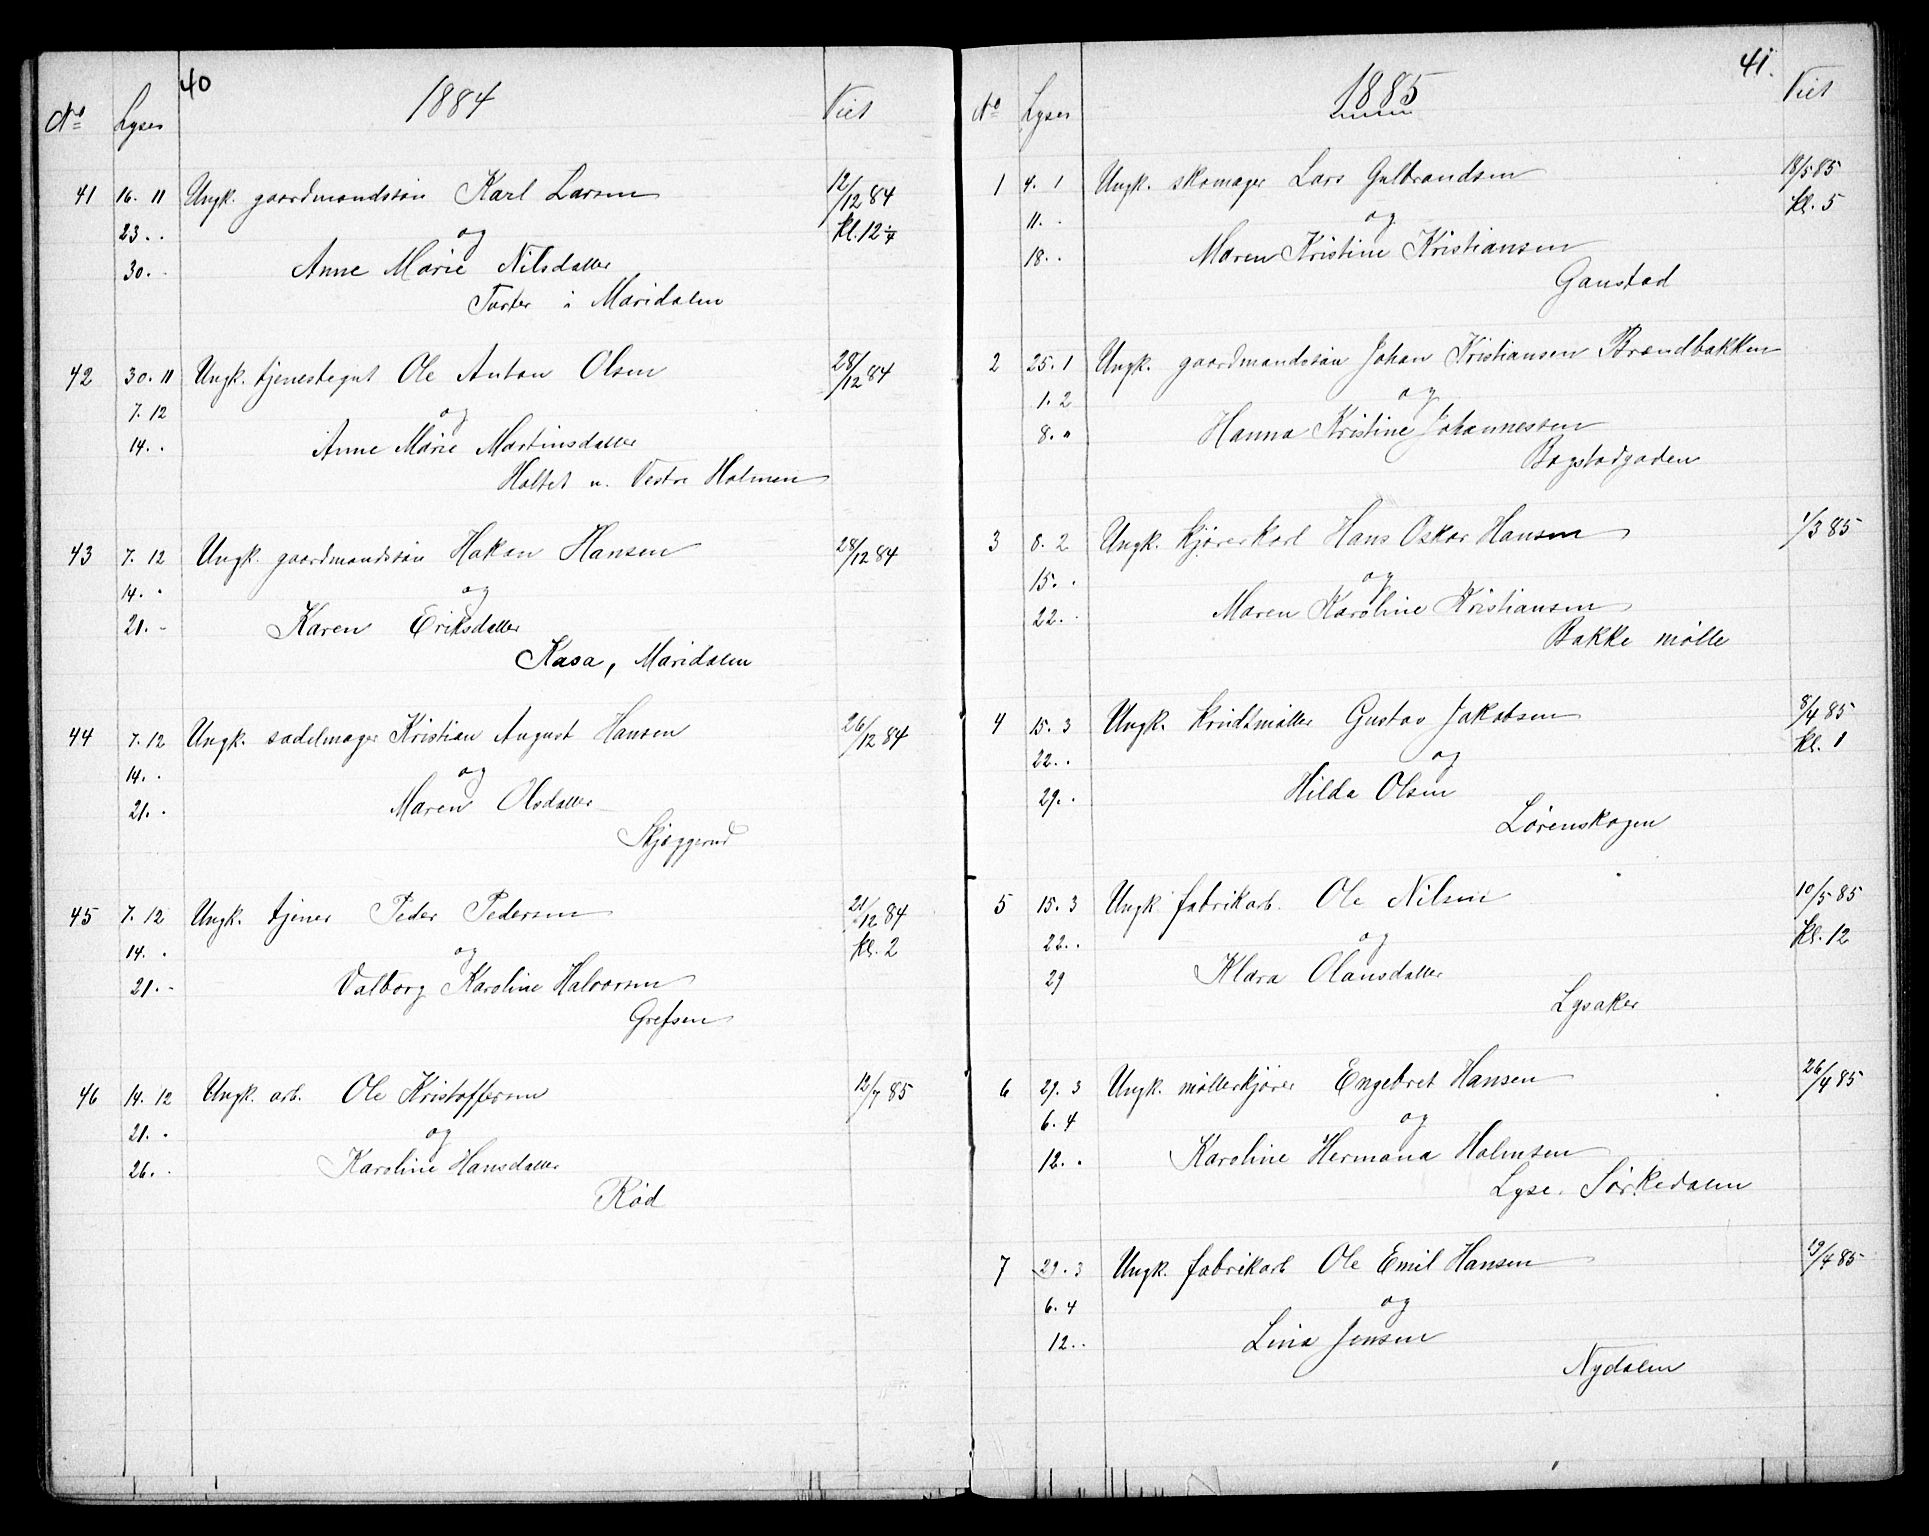 40
1884
No Lyser Viet
41 16. 11 Ungk. gaardmandssøn Karl Larsen 12/12 84
23. . og kl. 12 1/4
30. . Anne Marie Nilsdatter
Turter i Maridalen
42 30. 11 Ungk. tjenestegut Ole Anton Olsen 28/12 84
7. 12 og
14. . Anne Marie Martinsdatter
Holtet u. Vestre Holmen
43 7. 12 Ungk. gaardmandssøn Hakon Hansen 28/12 84
14. . og
21. . Karen Eriksdatter
Kasa, Maridalen
44 7. 12 Ungk. sadelmager Kristian August Hansen 26/12 84
14. . og
21. . Maren Olsdatter
Skjæggerud
45 7. 12 Ungk. tjener Peder Pedersen 21/12 84
14. . og kl. 2
21. . Valborg Karoline Halvorsen
Grefsen
46 14. 12 Ungk. arb. Ole Kristoffersen 12/7 85
21. . og
26. . Karoline Hansdatter
Rød
41.
1885
No Lyser Viet
1 4. 1 Ungk. skomager Lars Gulbrandsen 18/5 85
11. . og kl. 5
18. . Maren Kristine Kristiansen
Gaustad
2 25. 1 Ungk. gaardmandssøn Johan Kristiansen Brændbakken
1. 2 og
8. " Hanna Kristine Johannessen
Bogstadgaden
3 8. 2 Ungk. kjørerkarl Hans Oskar Hansen 1/3 85
15. . og
22. . Maren Karoline Kristiansen
Bakke mølle
4 15. 3 Ungk. krudtmøller Gustav Jakobsen 8/4 85
22. . og kl. 1
29. . Hilda Olsen
Lørenskogen
5 15. 3 Ungk fabrikarb. Ole Nilsen 10/5 85
22. . og kl. 12
29 Klara Olausdatter
Lysaker
6 29. 3 Ungk. møllerkjører Engebret Hansen 26/4 85
6. 4 og
12. . Karoline Hermana Holmsen
Lyse. Sørkedalen
7 29. 3 Ungk. fabrikarb Ole Emil Hansen 19/4 85
6. 4 og
12. . Lina Jensen
Nydalen